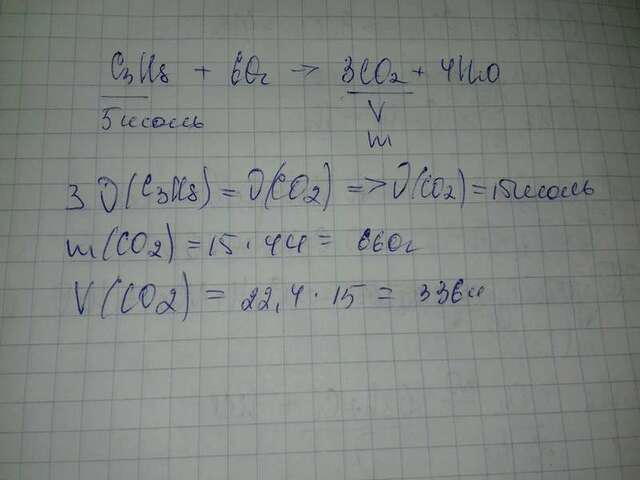 C3H8 + 6O2 → 3CO2 + 4H2O
5 моль V
m
3 ν(C3H8) = ν(CO2) => ν(CO2) = 15 моль
m(CO2) = 15 · 44 = 660г
V(CO2) = 22,4 · 15 = 336л